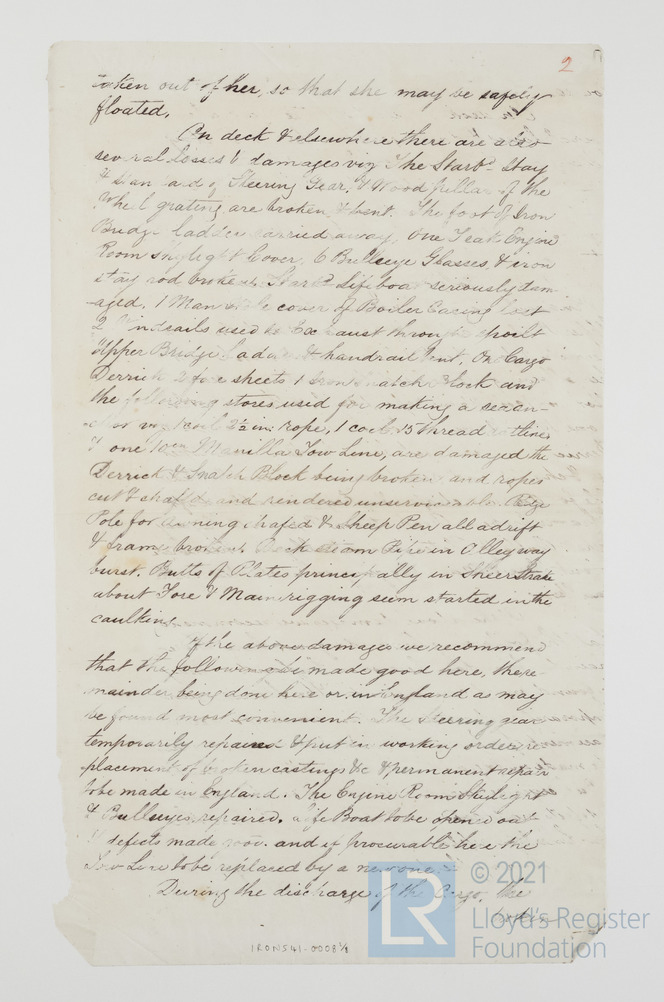 2
taken out of her, so that she may be safely
floated.
On deck & elsewhere there are also
several losses & damages viz The Starbd Stay
& Standard of Steering Gear, & Wood pillar of the
Wheel grating are broken & bent. The foot of Iron
Bridge ladder carried away, One Teak Engine
Room Skylight Cover, 6 Bullseye Glasses, & iron
stay rod broken, Starbd Lifeboat seriously dam-
aged. 1 Man hole cover of Boiler Casing lost
2 handrails used to Exhaust through spoilt
Upper Bridge ladder & handrail bent, On Cargo
Derrick 2 fore sheets 1 Iron Snatch Block and
the following stores used for making a
1 coil 2½ in: rope, 1 coil 15 thread
& one 10 in Manilla Tow Line, are damaged the
Derrick & Snatch Block being broken and ropes
cut & chafed and rendered unserviceable. Ridge
Pole for awning chafed & Sheep Pen all adrift
& frame broken. Deck steam Pipe in Alleyway
burst. Butts of Plates principally in Sheerstrake
about Fore & Main rigging seem started in the
caulking.
Of the above damages we recommend
that the following be made good here, the re-
mainder being done here or in England as may
be found most convenient. The steering gear
temporarily repaired & put in working order, re-
placement of broken castings &c & permanent repair
to be made in England. The Engine Room Skylight
& Bullseyes repaired. Life Boat to be opened out
& defects made good. and if procurable here the
Tow Line to be replaced by a new one.
During the discharge of the Cargo, the
IRON541-0008 1/2
LR
© 2021
Lloyd's Register
Foundation